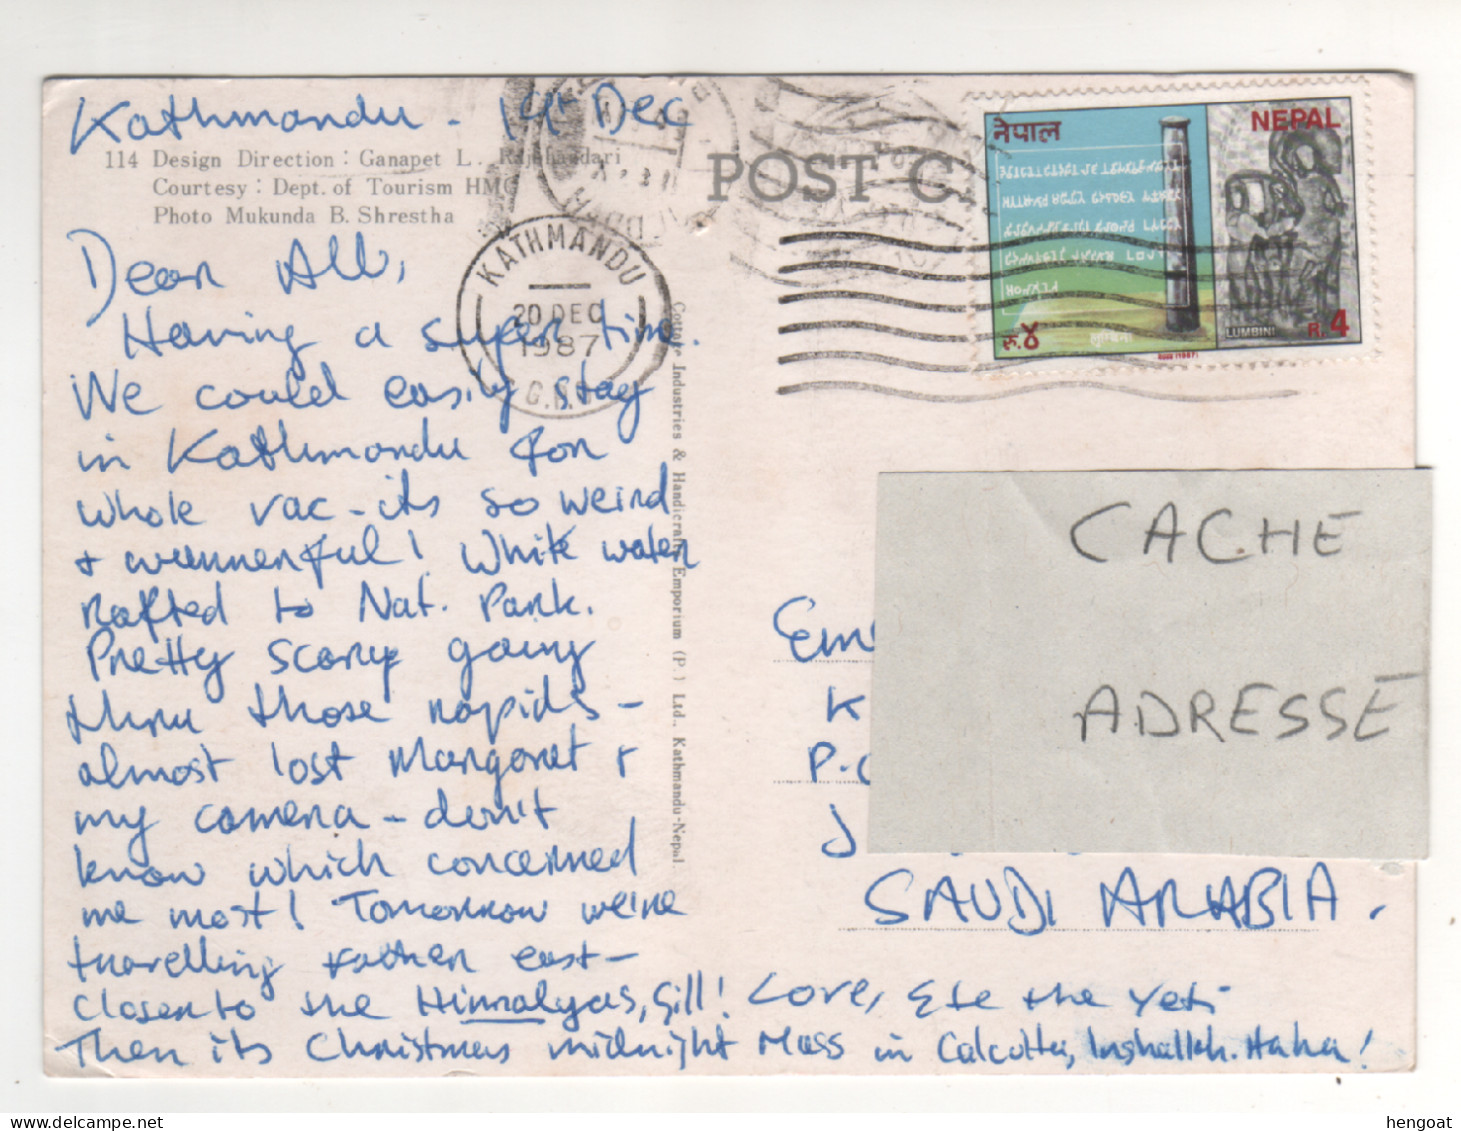 Kathmandu - 19th Dec
114 Design Direction : Ganapet L. Rajbhandari
Courtesy : Dept. of Tourism HMG
Photo Mukunda B. Shrestha
POST C
Dear All,
Having a super time.
We could easily stay
in Kathmandu for
whole vac - its so weird
+ wunnerful! White water
rafted to Nat. Park.
Pretty scary going
thru those rapids -
almost lost Margaret +
my camera - don't
know which concerned
me most! Tomorrow we're
travelling further east -
closer to the Himmalyas, Gill! Love, & the Yeti
Then its Christmas midnight Mass in Calcutta, Inshallah. Haha!
KATHMANDU
20 DEC
1987
G.P.O.
Cottage Industries & Handicrafts Emporium (P.) Ltd., Kathmandu-Nepal.
नेपाल
NEPAL
रु. ४
लुम्बिनी
LUMBINI
R. 4
CACHE
ADRESSE
Em
K
P.O
J
SAUDI ARABIA.
hengoat